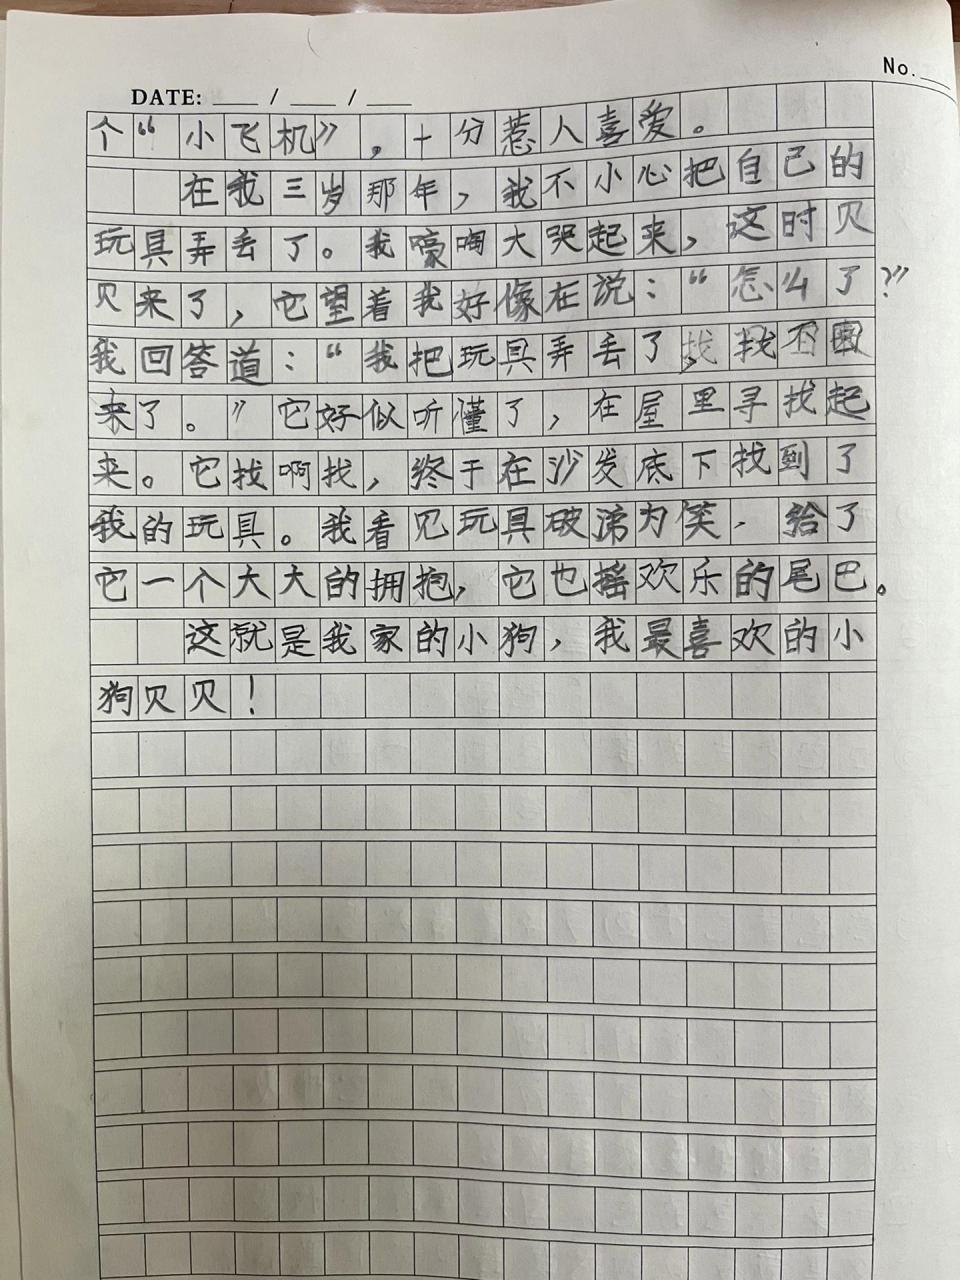 No.
DATE: / /
个“小飞机”，十分惹人喜爱。
在我三岁那年，我不小心把自己的
玩具弄丢了。我嚎啕大哭起来，这时贝
贝来了，它望着我好像在说：“怎么了？”
我回答道：“我把玩具弄丢了，找不回
来了。”它好似听懂了，在屋里寻找起
来。它找啊找，终于在沙发底下找到了
我的玩具。我看见玩具破涕为笑，给了
它一个大大的拥抱，它也摇欢乐的尾巴。
这就是我家的小狗，我最喜欢的小
狗贝贝！